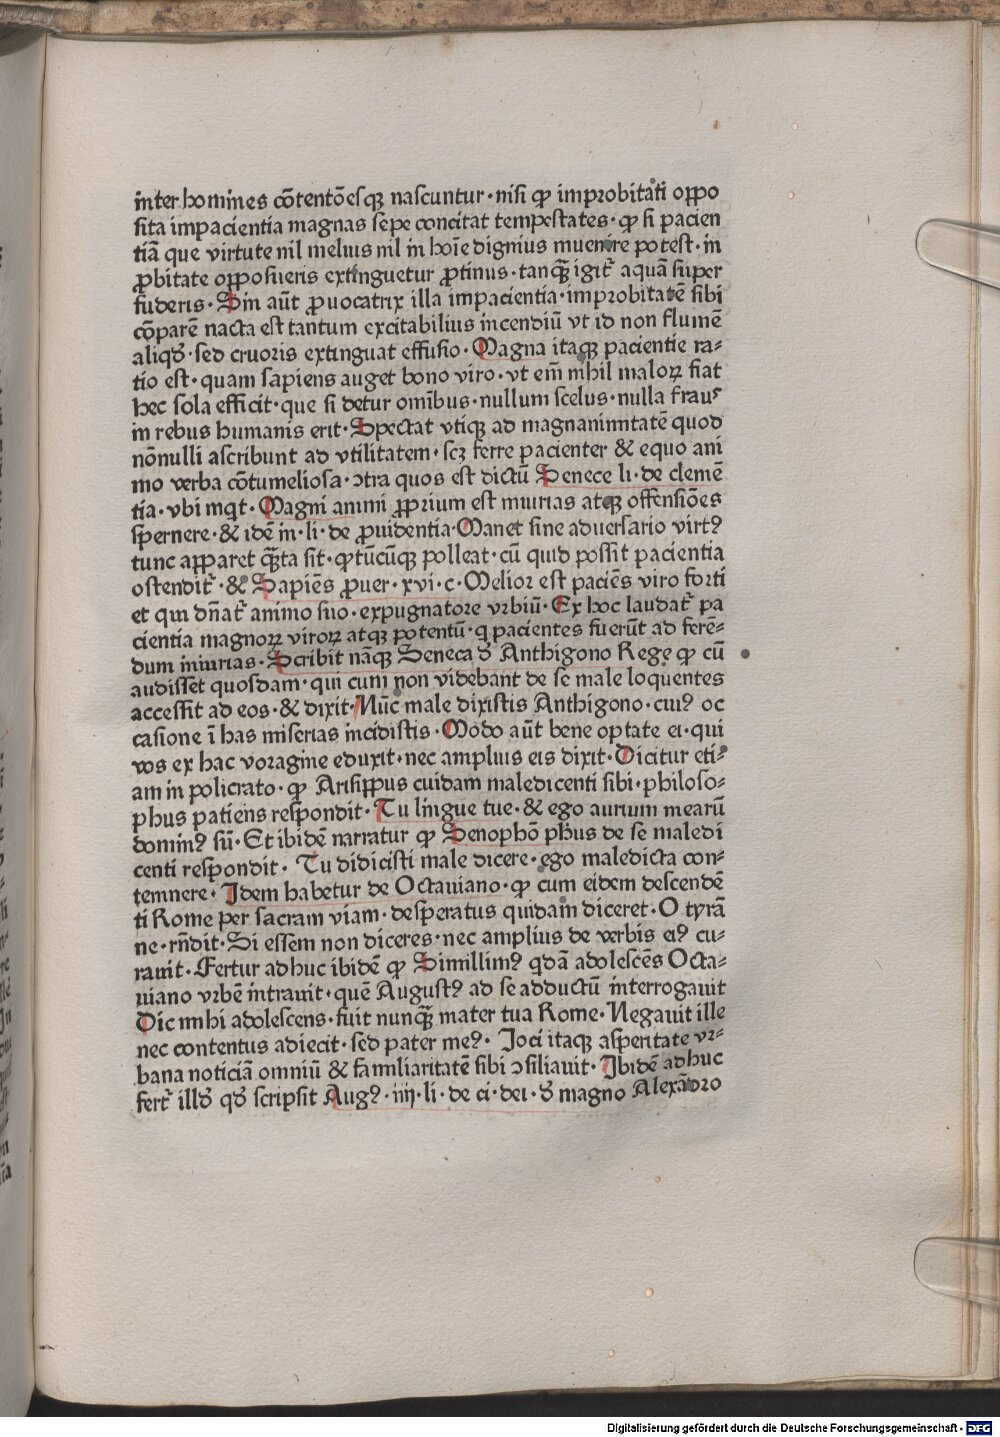 inter homines cōtentōesqꝫ nascuntur · nisi ꝙ improbitati oppo
sita impacientia magnas sepe concitat tempestates · ꝙ si pacien
tiā que virtute nil melius nil in hoīe dignius inuenire potest · in
ꝓbitate opposueris extinguetur ꝓtinus · tanqꝫ̄ igit̄ aquā super
fuderis · Sin aūt ꝓuocatrix illa impacientia · improbitatē sibi
cōparē nacta est tantum excitabilius incendiū vt id non flumē
aliqđ · sed cruoris extinguat effusio · Magna itaqꝫ pacientie ra-
tio est · quam sapiens auget bono viro · vt em̄ nihil maloꝝ fiat
hec sola efficit · que si detur omībus · nullum scelus · nulla fraus
in rebus humanis erit · Spectat vtiqꝫ ad magnanimitatē quod
nōnulli ascribunt ad vtilitatem · scꝫ ferre pacienter & equo ani
mo verba cōtumeliosa · ↄtra quos est dictū Senece li · de clemē
tia · vbi inqt · Magni animi ꝓprium est iniurias atqꝫ offensiōes
spernere · & idē in · li · de ꝓuidentia · Manet sine aduersario virtꝰ
tunc apparet qꝫ̄ta sit · ꝙtūcūqꝫ polleat · cū quid possit pacientia
ostendit̄ · & Sapiēs ꝓuer · xvi · c · Melior est paciēs viro forti
et qui dn̄at̄ animo suo · expugnatore vrbiū · Ex hoc laudat̄ pa
cientia magnoꝝ viroꝝ atqꝫ potentū · q pacientes fuerūt ad ferē-
dum iniurias · Scribit nāqꝫ Seneca đ Anthigono Rege ꝙ cū
audisset quosdam · qui cum non videbant de se male loquentes
accessit ad eos · & dixit · Nūc male dixistis Anthigono · cuiꝰ oc
casione ī has miserias incidistis · Modo aūt bene optate ei · qui
vos ex hac voragine eduxit · nec amplius eis dixit · Dicitur eti-
am in policrato · ꝙ Arisippus cuidam maledicenti sibi · philoso-
phus patiens respondit · Tu lingue tue · & ego aurium mearū
dominꝰ sū · Et ibidē narratur ꝙ Senophō ph̄us de se maledi
centi respondit · Tu didicisti male dicere · ego maledicta con-
temnere · Idem habetur de Octauiano · ꝙ cum eidem descendē
ti Rome per sacram viam · desperatus quidam diceret · O tyrā
ne · rn̄dit · Si essem non diceres · nec amplius de verbis eiꝰ cu-
rauit · Fertur adhuc ibidē ꝙ Simillimꝰ qdā adolescēs Octa-
uiano vrbē intrauit · quē Augustꝰ ad se adductū interrogauit
Dic mihi adolescens · fuit nunqꝫ̄ mater tua Rome · Negauit ille
nec contentus adiecit · sed pater meꝰ · Joci itaqꝫ asperitate vr-
bana noticiā omniū & familiaritatē sibi ↄsiliauit · Ibidē adhuc
fert̄ illđ qđ scripsit Augꝰ · iiij · li · de ci · dei · đ magno Alexādro
Digitalisierung gefördert durch die Deutsche Forschungsgemeinschaft · DFG